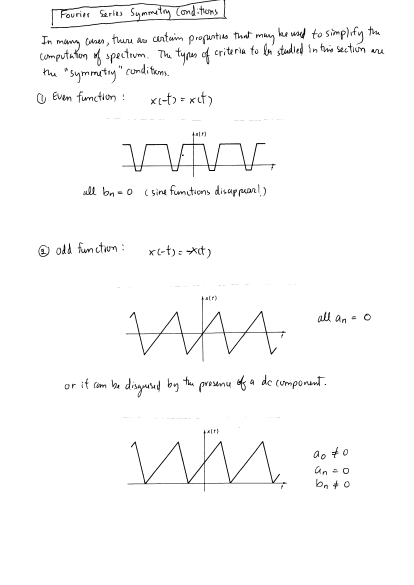 Fourier Series Symmetry Conditions
In many cases, there are certain properties that may be used to simplify the
computation of spectrum. The types of criteria to be studied in this section are
the "symmetry" conditions.
① Even function : x(-t) = x(t)
x(t)
t
all bn = 0 (sine functions disappear!)
② odd function : x(-t) = -x(t)
x(t)
all an = 0
t
or it can be disguised by the presence of a dc component.
x(t)
a0 ≠ 0
an = 0
bn ≠ 0
t